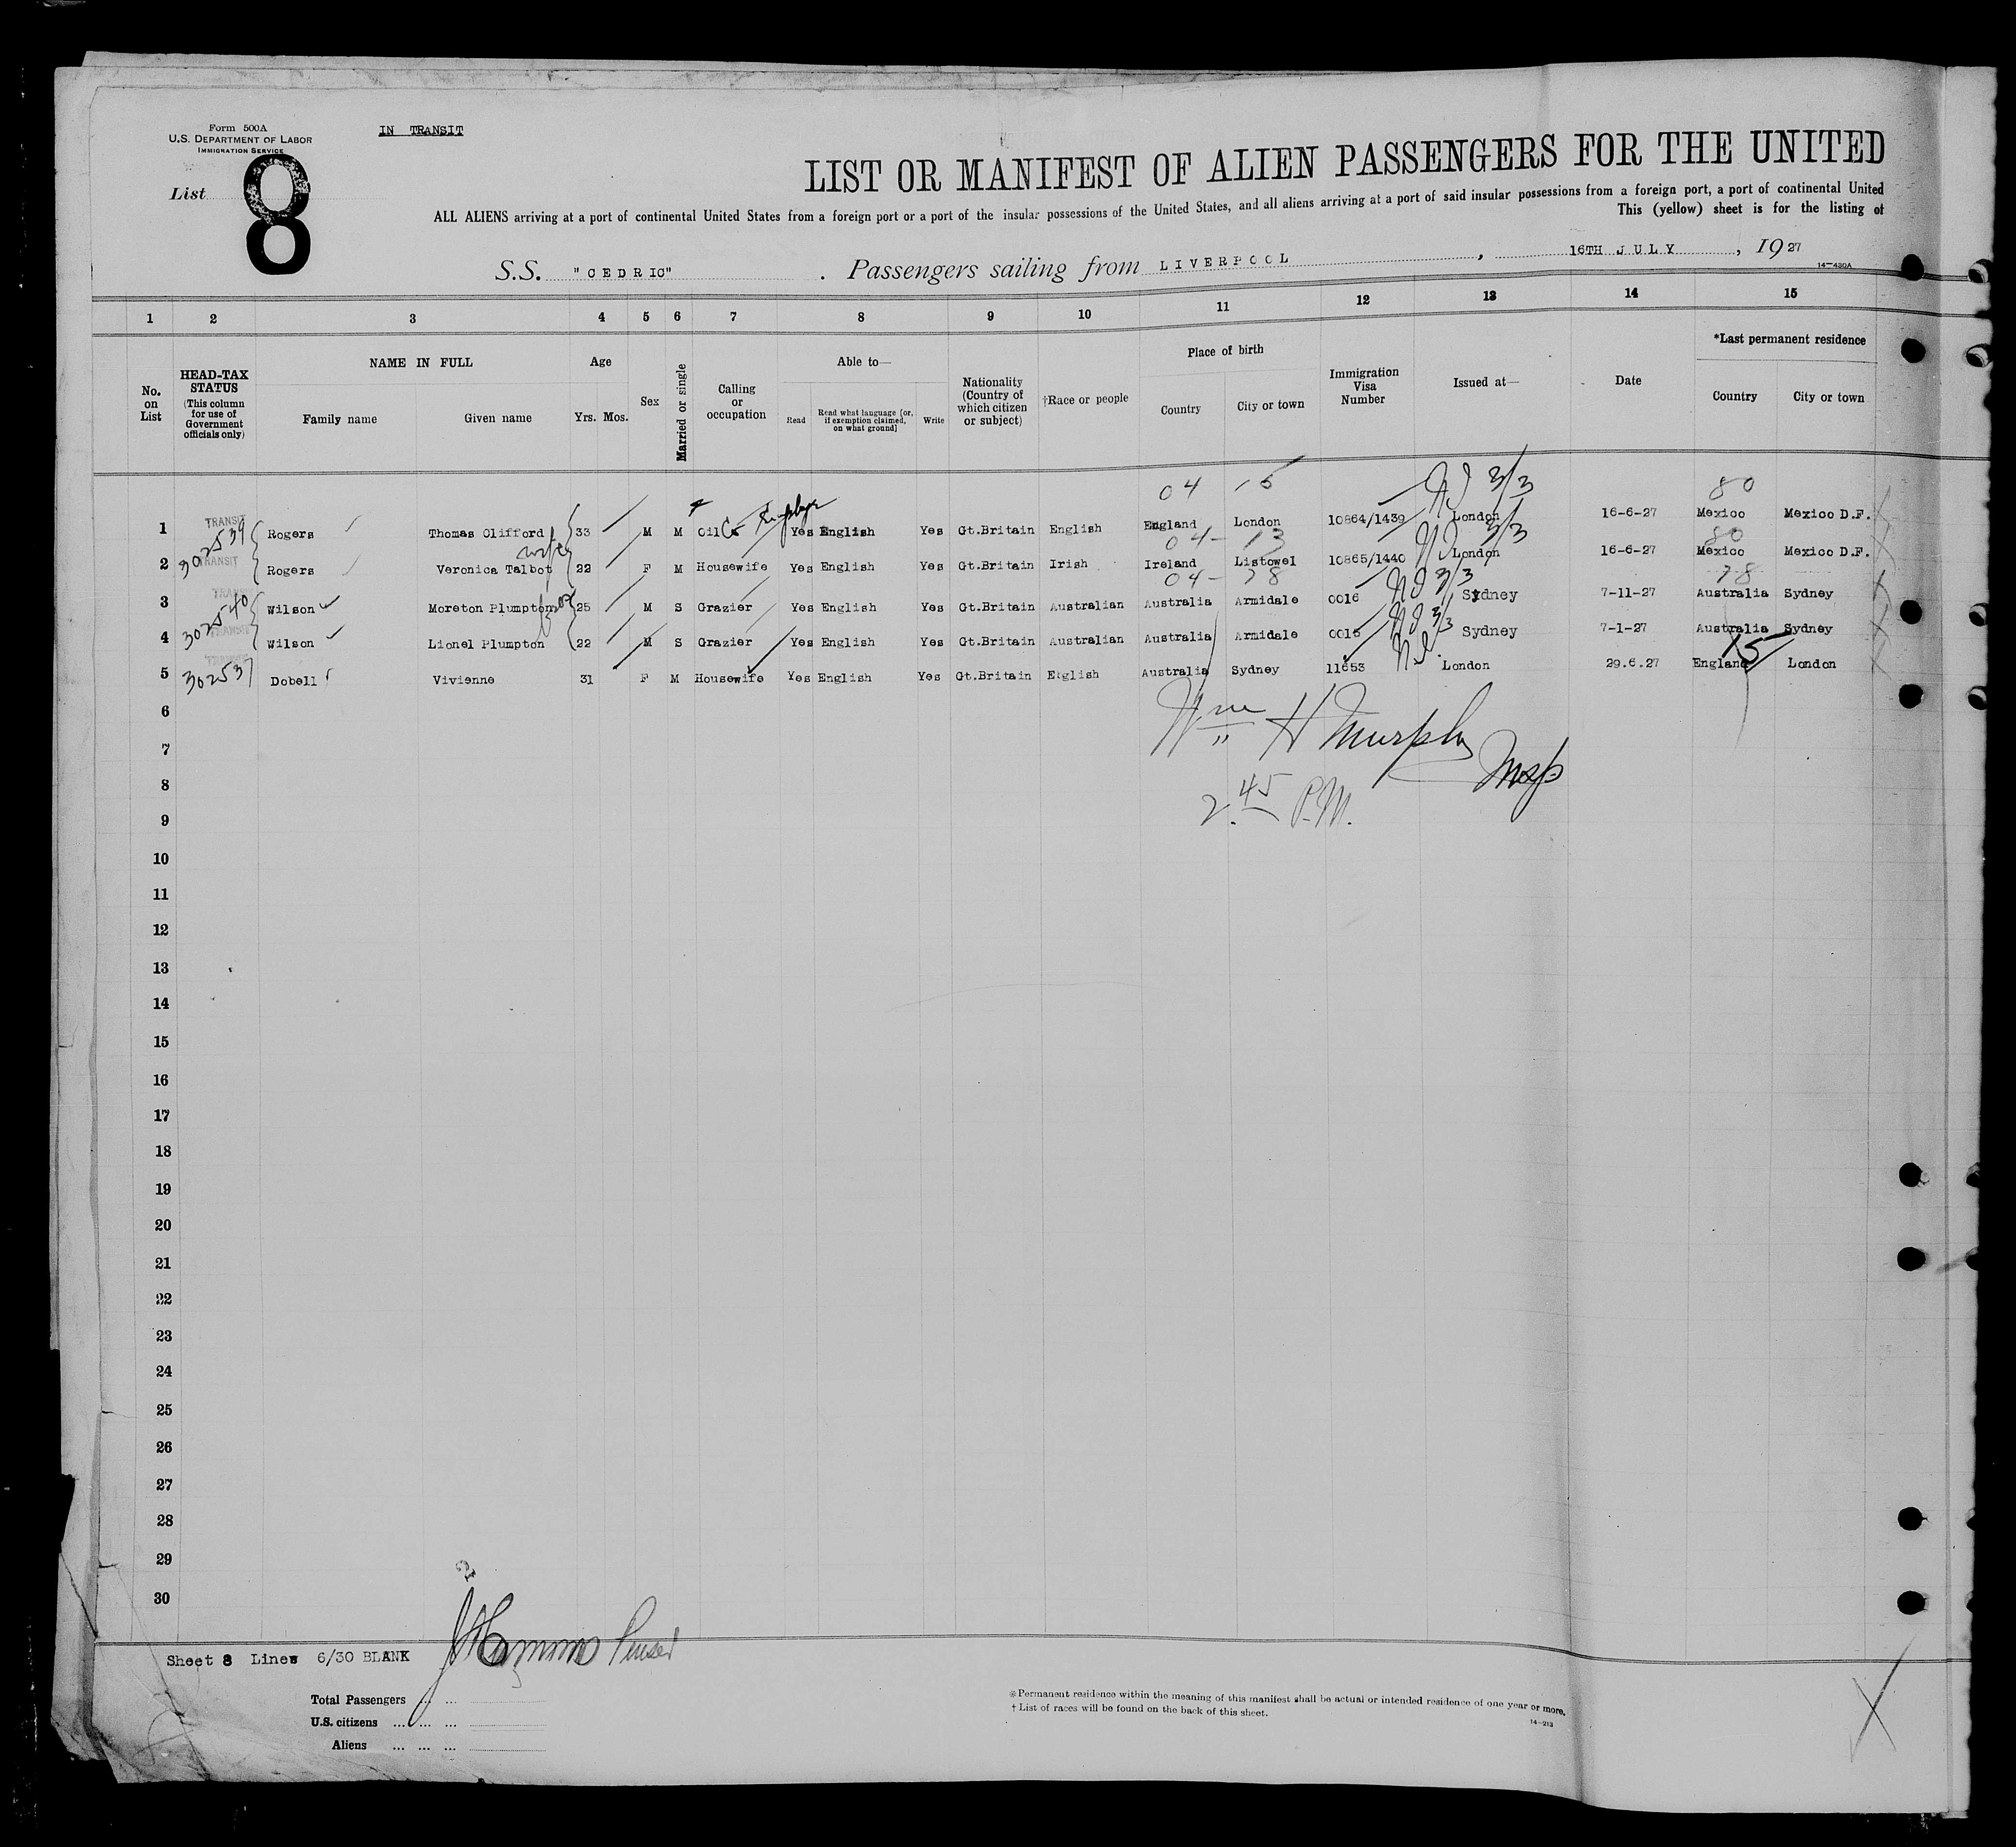 Form 500A
U.S. DEPARTMENT OF LABOR
IMMIGRATION SERVICE
IN TRANSIT
List 8
LIST OR MANIFEST OF ALIEN PASSENGERS FOR THE UNITED
ALL ALIENS arriving at a port of continental United States from a foreign port or a port of the insular possessions of the United States, and all aliens arriving at a port of said insular possessions from a foreign port, a port of continental United
This (yellow) sheet is for the listing of
S.S. "CEDRIC" . Passengers sailing from LIVERPOOL , 16TH JULY , 1927
14-430A
1 2 3 4 5 6 7 8 9 10 11 12 13 14 15
No. on List
HEAD-TAX STATUS (This column for use of Government officials only)
NAME IN FULL
Family name Given name
Age
Yrs. Mos.
Sex
Married or single
Calling or occupation
Able to—
Read Read what language [or, if exemption claimed, on what ground] Write
Nationality (Country of which citizen or subject)
†Race or people
Place of birth
Country City or town
Immigration Visa Number
Issued at—
Date
*Last permanent residence
Country City or town
04 15 3/3 80
1 TRANSIT 302539 Rogers Thomas Clifford 33 M M Oil Co Employe Yes English Yes Gt.Britain English England London 10864/1439 London 16-6-27 Mexico Mexico D.F.
wife 04- 13 3/3 80
2 TRANSIT Rogers Veronica Talbot 22 F M Housewife Yes English Yes Gt.Britain Irish Ireland Listowel 10865/1440 London 16-6-27 Mexico Mexico D.F.
04- 78 3/3 78
3 TRANSIT 302540 Wilson Moreton Plumpton 25 M S Grazier Yes English Yes Gt.Britain Australian Australia Armidale 0016 Sydney 7-11-27 Australia Sydney
3/3
4 TRANSIT Wilson Lionel Plumpton 22 M S Grazier Yes English Yes Gt.Britain Australian Australia Armidale 0015 Sydney 7-1-27 Australia Sydney
15
5 TRANSIT 302537 Dobell Vivienne 31 F M Housewife Yes English Yes Gt.Britain English Australia Sydney 11653 London 29.6.27 England London
6
Wm H Murphy
7
Insp
8
2.45 P.M.
9
10
11
12
13
14
15
16
17
18
19
20
21
22
23
24
25
26
27
28
29
30
Purser
Sheet 8 Lines 6/30 BLANK
Total Passengers ... ...
U.S. citizens ... ... ...
Aliens ... ... ...
※Permanent residence within the meaning of this manifest shall be actual or intended residence of one year or more.
† List of races will be found on the back of this sheet.
14-213